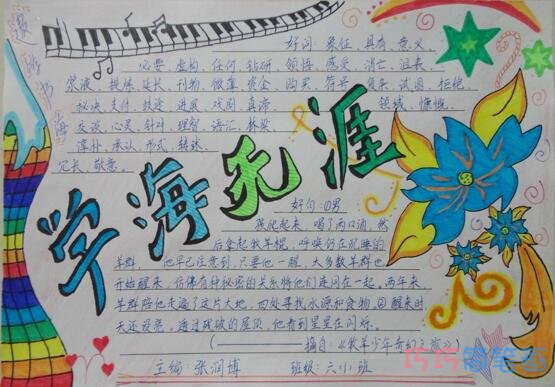 遨游书海
好词：象征、具有、意义、
必要、虚构、任何、钻研、领悟、感受、消亡、滋长、
浆液、提炼、延长、刊物、微薄、资金、购买、符号、复杂、试图、拒绝、
秘诀、支付、鼓途、进展、戏剧、真谛、领域、慷慨、
友谈、心灵、针对、理智、语汇、栋梁、
淳朴、承认、形式、转球、
冗长、敬意。
学海无涯
好句：①男
孩爬起来，喝了两口酒，然
后拿起牧羊棍，呼唤仍在沉睡的
羊群，他早已注意到，只要他一醒，大多数羊群也
开始醒来，仿佛有种秘密的关系将他们连同在一起，两年来，
羊群陪他走遍了这片大地，四处寻找水源和食物。②醒来时
天还没亮，透过残破的屋顶，他看到星星在闪烁。
（————摘自：《牧羊少年奇幻之旅》）
主编：张润博 班级：六小班
巧巧简笔画